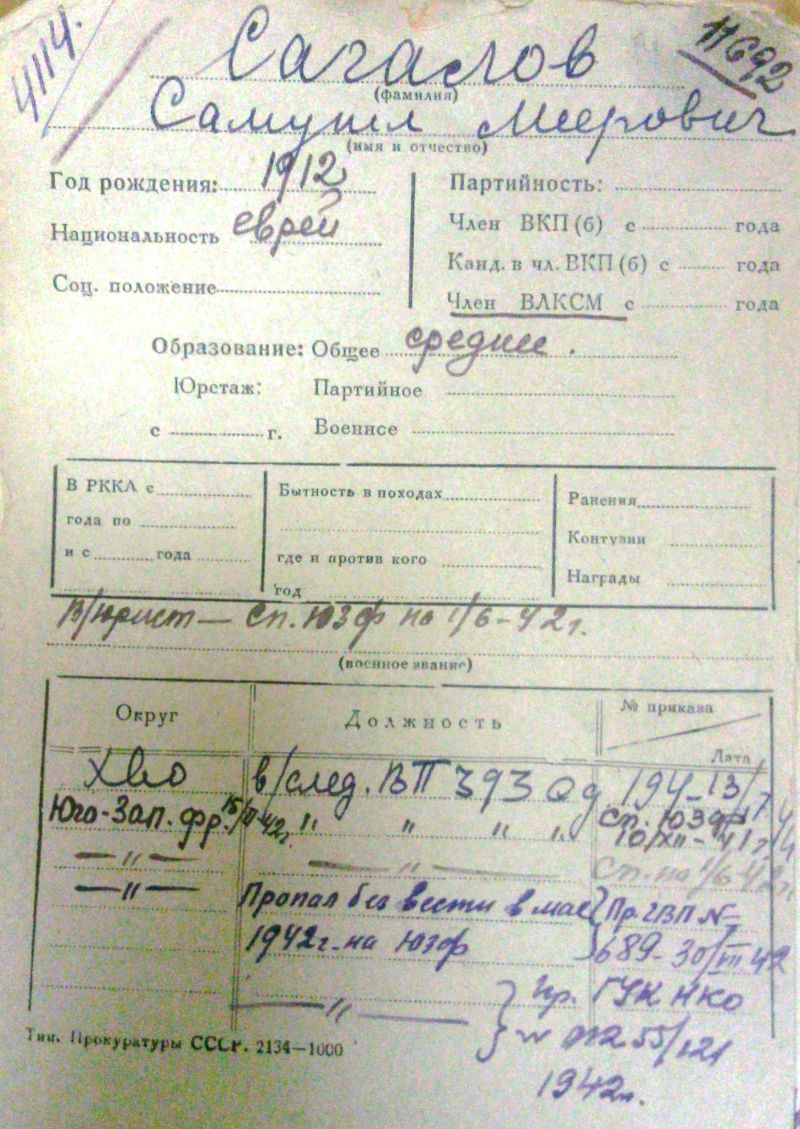 4114.
11692
Сагалов
(фамилия)
Самуил Меерович
(имя и отчество)
Год рождения: 1912
Национальность еврей
Соц. положение
Партийность:
Член ВКП (б) с года
Канд. в чл. ВКП (б) с года
Член ВЛКСМ с года
Образование: Общее среднее.
Юрстаж: Партийное
с г. Военнсе
В РККА с
года по
и с года
Бытность в походах
где и против кого
год
Ранения
Контузии
Награды
В/юрист — Сп. ЮЗФ на 1/6-42г.
(военное звание)
Округ Должность № приказа
Дата
ХВО в/след. ВП 393 сд 194-13/
Юго-Зап. фр. 15/ 42г. " " " " сп. ЮЗФ
10/XII-41г.
— " — — " — Сп. на 1/6 42г.
— " — Пропал без вести в мае Пр. ГВП №
1942г. на ЮЗФ 689-30/ 42
— " — Пр. ГУК НКО
№ 0255/
1942г.
Тип. Прокуратуры СССР. 2134—1000